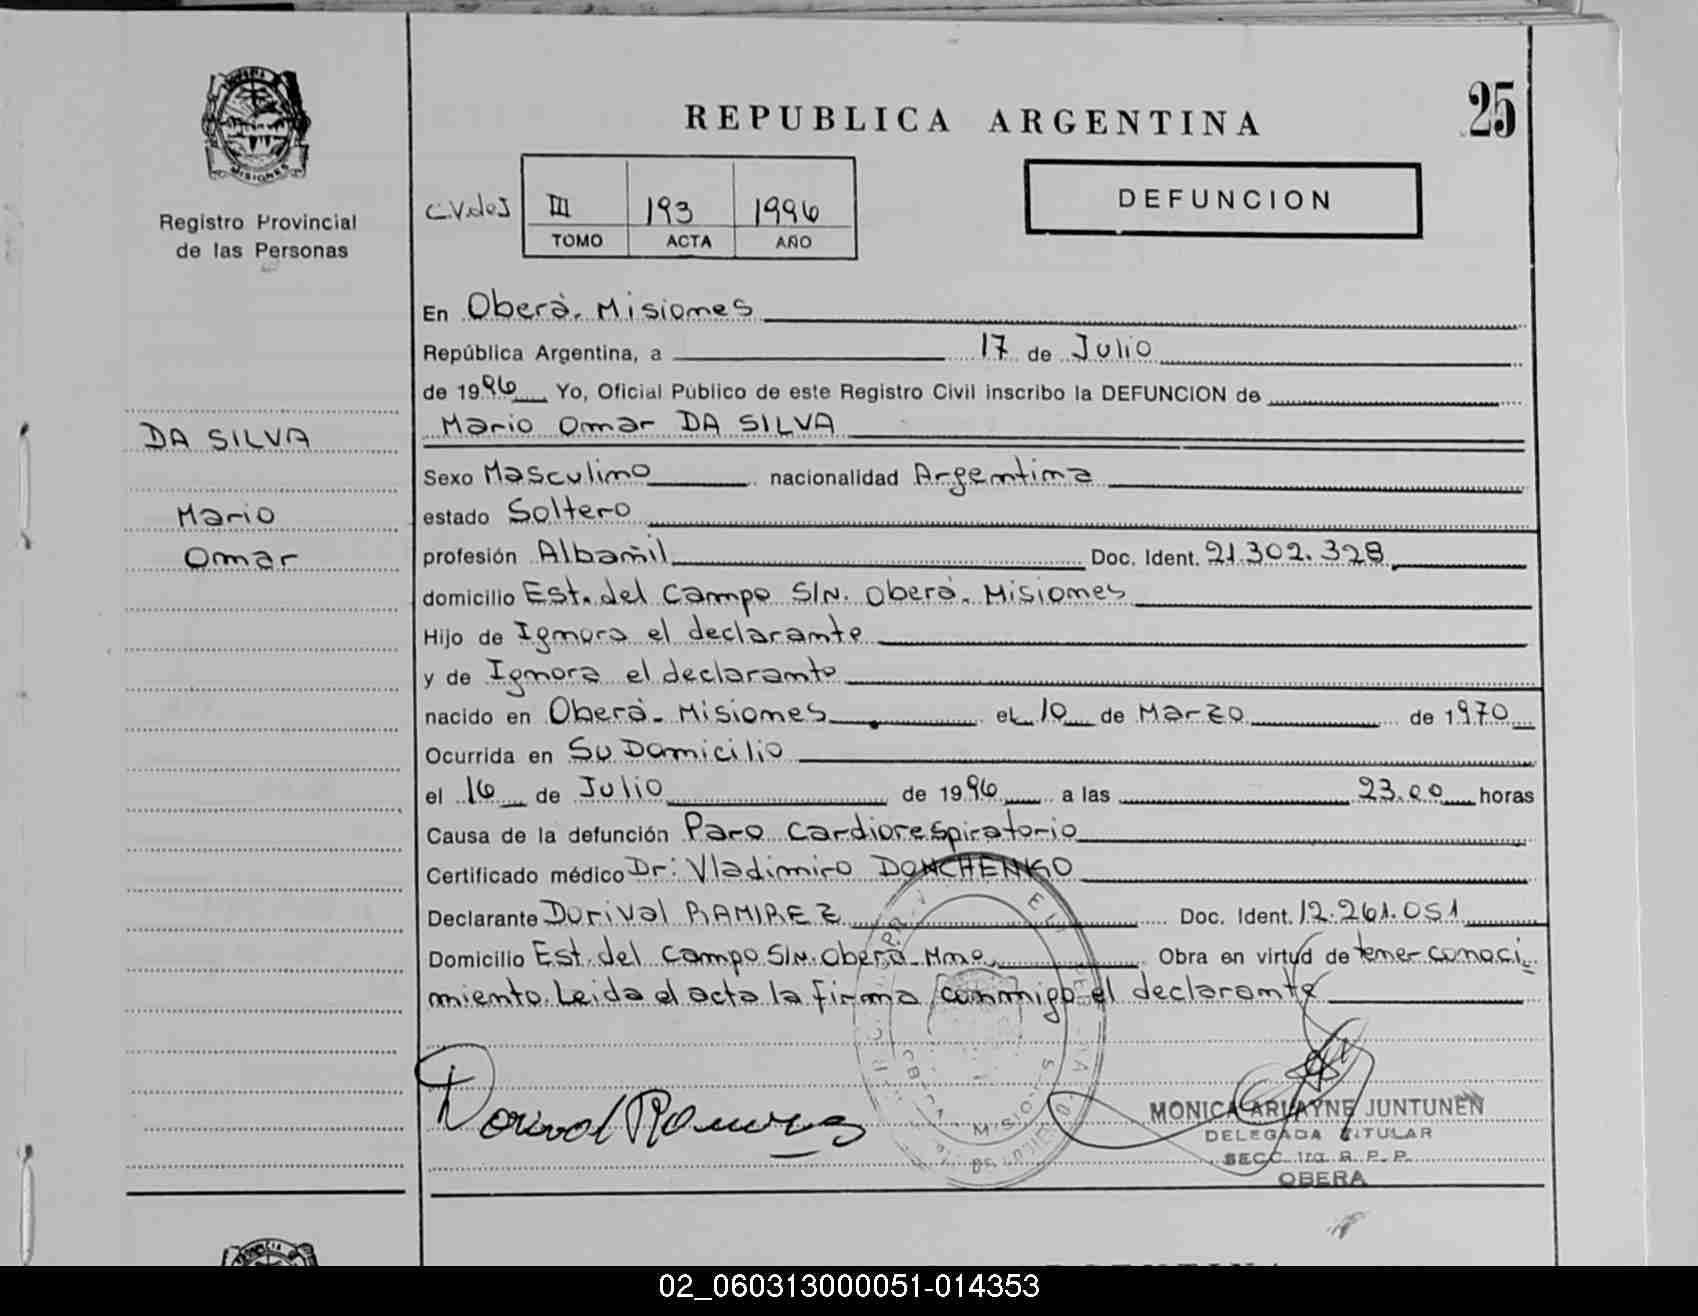 REPUBLICA ARGENTINA
25
PROVINCIA DE
MISIONES
Registro Provincial
de las Personas
III 193 1996
TOMO ACTA AÑO
DEFUNCION
En Oberá. Misiones
República Argentina, a 17 de Julio
de 1996 Yo, Oficial Público de este Registro Civil inscribo la DEFUNCION de
Mario Omar DA SILVA
DA SILVA
Mario
Omar
Sexo Masculino nacionalidad Argentina
estado Soltero
profesión Albañil Doc. Ident. 21.302.328
domicilio Est. del Campo S/N. Oberá. Misiones
Hijo de Ignora el declarante
y de Ignora el declarante
nacido en Oberá. Misiones el 10 de Marzo de 1970
Ocurrida en Su Domicilio
el 16 de Julio de 1996 a las 23.00 horas
Causa de la defunción Paro Cardiorespiratorio
Certificado médico Dr: Vladimiro DONCHENKO
Declarante Dorival RAMIREZ Doc. Ident. 12.261.051
Domicilio Est. del Campo S/N. Oberá. Mnes. Obra en virtud de tener conoci
miento. Leida el acta la firma conmigo el declarante
Dorival Ramirez
MONICA ARIAYNE JUNTUNEN
DELEGADA TITULAR
SECC. 1ra. R. P. P.
OBERA
02_060313000051-014353